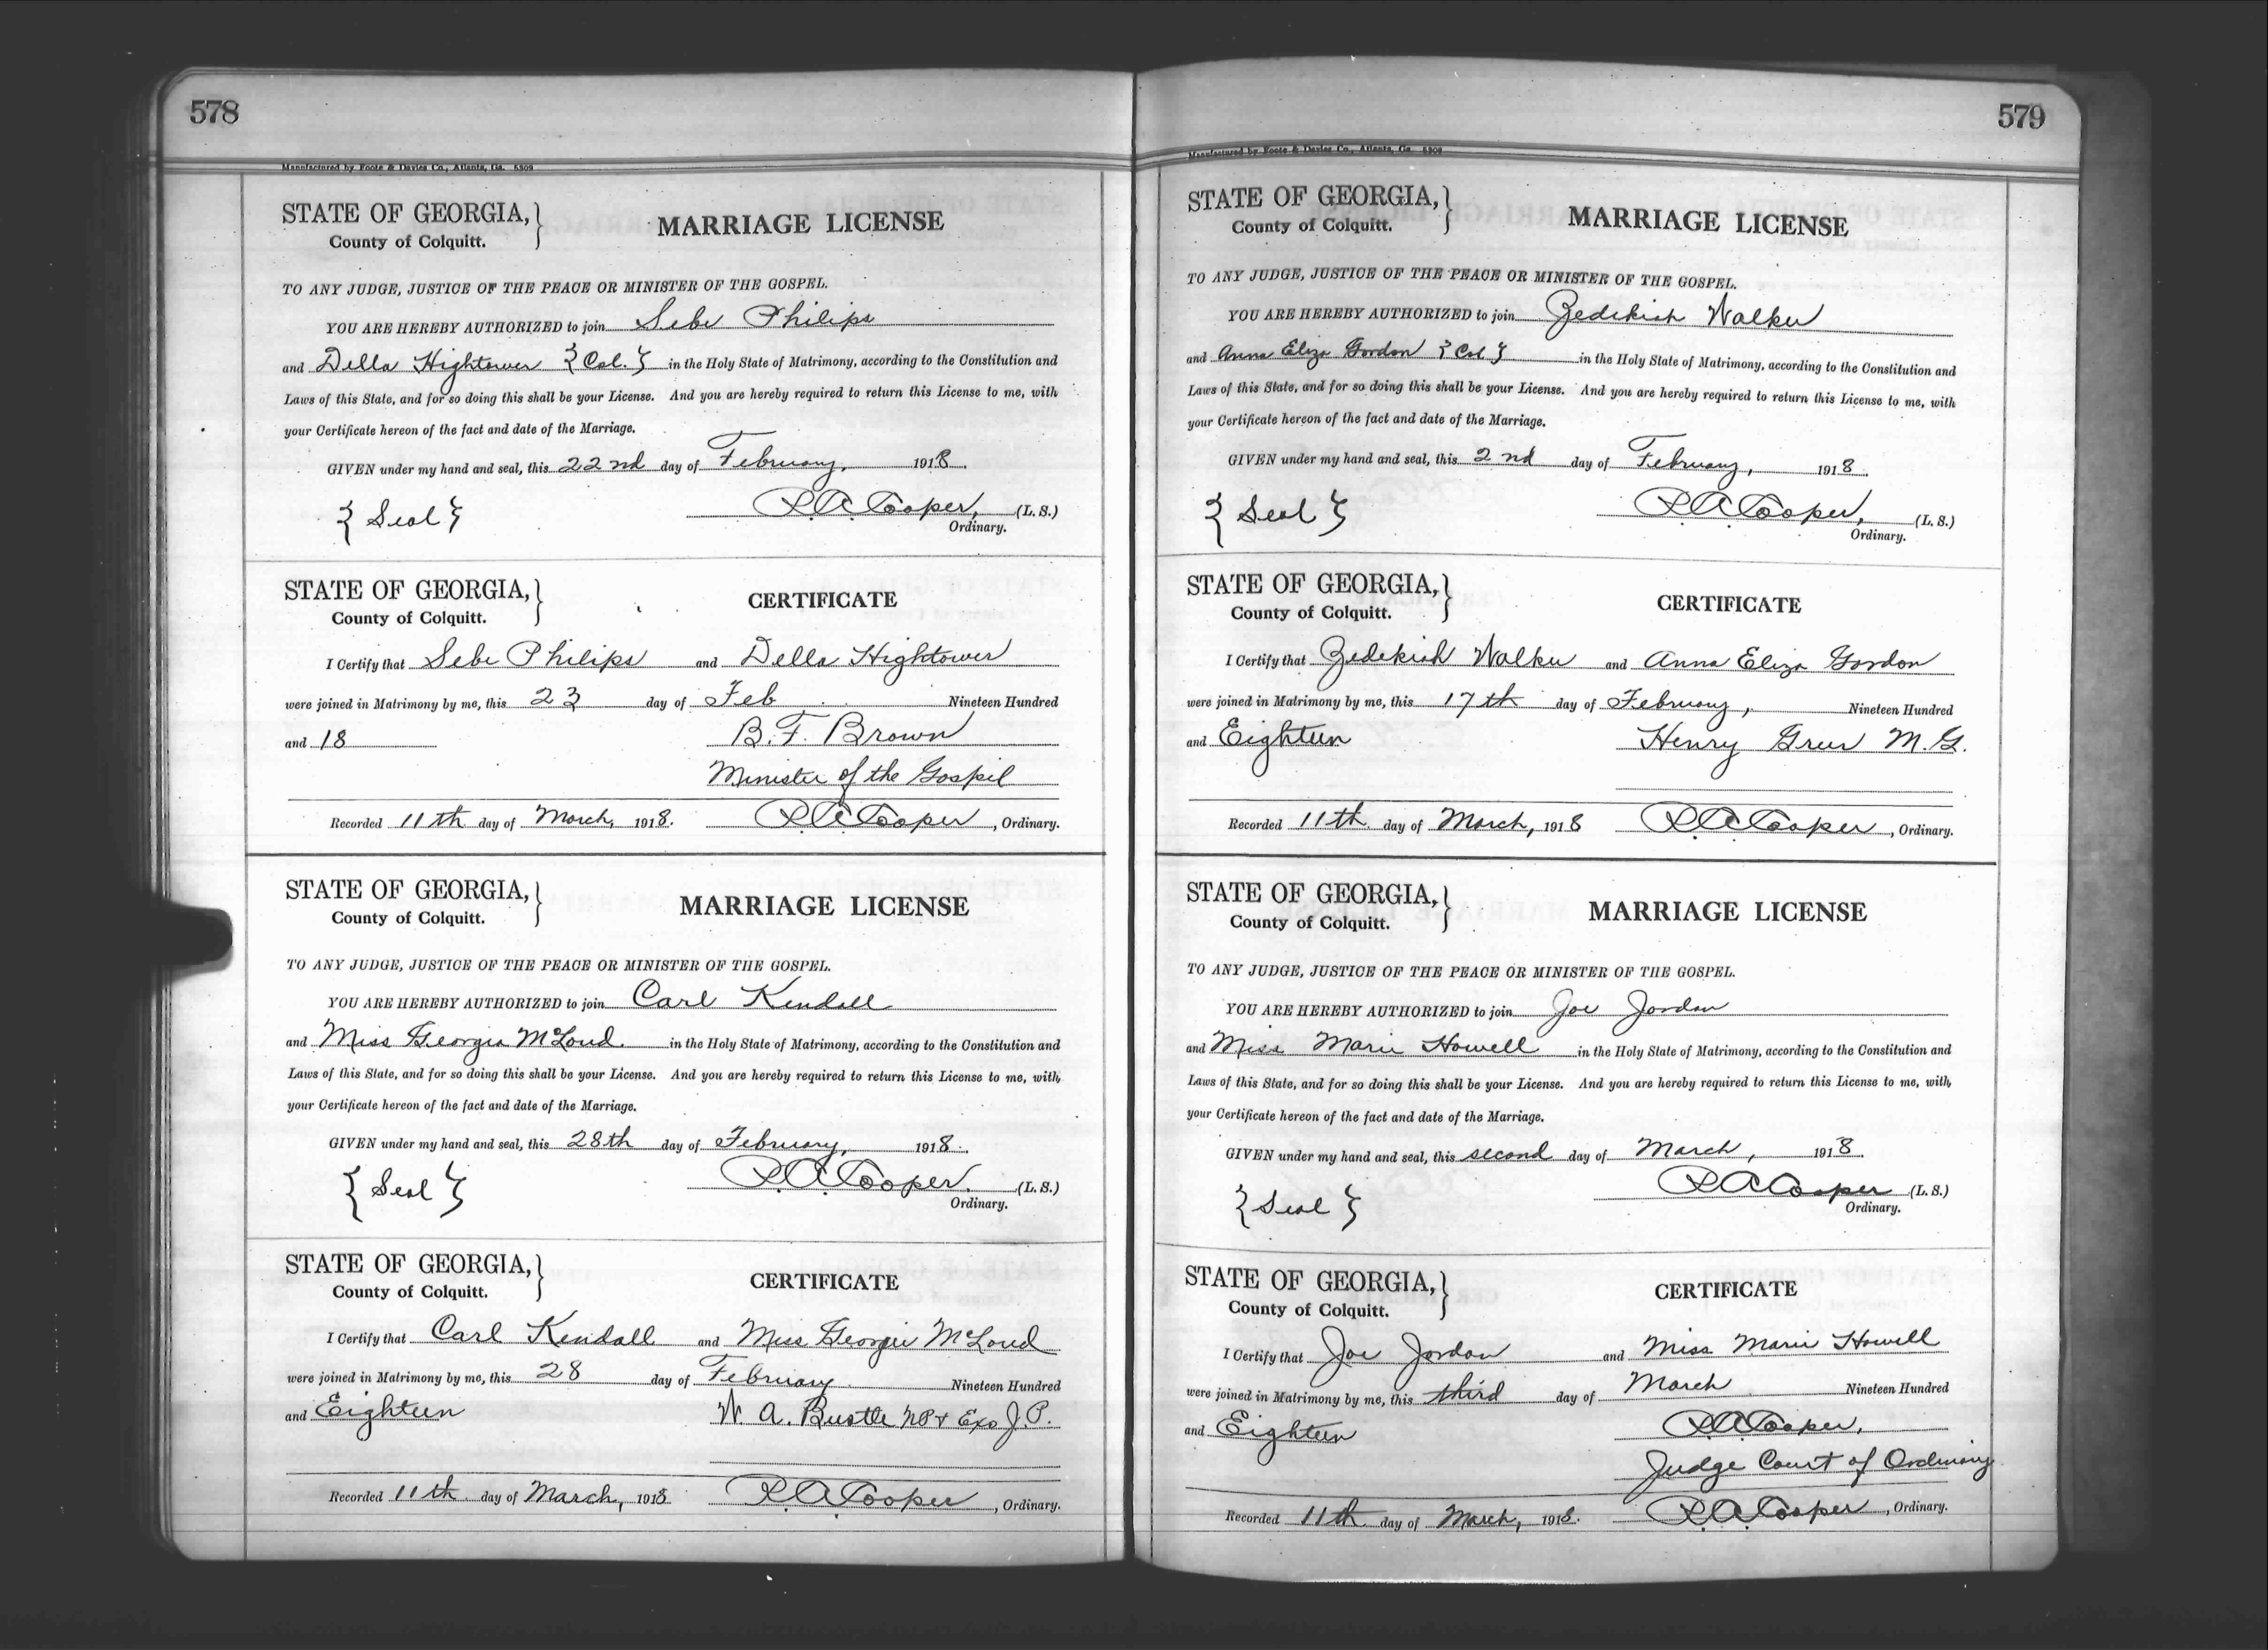 578
Manufactured by Foote & Davies Co., Atlanta, Ga. 5309
STATE OF GEORGIA,
County of Colquitt.
MARRIAGE LICENSE
TO ANY JUDGE, JUSTICE OF THE PEACE OR MINISTER OF THE GOSPEL.
YOU ARE HEREBY AUTHORIZED to join Sebe Philips
and Della Hightower {Col.} in the Holy State of Matrimony, according to the Constitution and
Laws of this State, and for so doing this shall be your License. And you are hereby required to return this License to me, with
your Certificate hereon of the fact and date of the Marriage.
GIVEN under my hand and seal, this 22nd day of February, 1918.
{Seal} R.A. Cooper, (L. S.)
Ordinary.
STATE OF GEORGIA,
County of Colquitt.
CERTIFICATE
I Certify that Sebe Philips and Della Hightower
were joined in Matrimony by me, this 23 day of Feb Nineteen Hundred
and 18 B.F. Brown
Minister of the Gospil
Recorded 11th day of March, 1918. R.A. Cooper, Ordinary.
STATE OF GEORGIA,
County of Colquitt.
MARRIAGE LICENSE
TO ANY JUDGE, JUSTICE OF THE PEACE OR MINISTER OF THE GOSPEL.
YOU ARE HEREBY AUTHORIZED to join Carl Kendall
and Miss Georgia McLoud in the Holy State of Matrimony, according to the Constitution and
Laws of this State, and for so doing this shall be your License. And you are hereby required to return this License to me, with
your Certificate hereon of the fact and date of the Marriage.
GIVEN under my hand and seal, this 28th day of February, 1918.
{Seal} R.A. Cooper. (L. S.)
Ordinary.
STATE OF GEORGIA,
County of Colquitt.
CERTIFICATE
I Certify that Carl Kendall and Miss Georgie McLoud
were joined in Matrimony by me, this 28 day of February Nineteen Hundred
and Eighteen W. A. Bustle NP & Exo J.P.
Recorded 11th day of March, 1918 R.A. Cooper, Ordinary.
579
Manufactured by Foote & Davies Co., Atlanta, Ga. 5309
STATE OF GEORGIA,
County of Colquitt.
MARRIAGE LICENSE
TO ANY JUDGE, JUSTICE OF THE PEACE OR MINISTER OF THE GOSPEL.
YOU ARE HEREBY AUTHORIZED to join Zedekiah Walker
and Anna Eliza Gordon {Col} in the Holy State of Matrimony, according to the Constitution and
Laws of this State, and for so doing this shall be your License. And you are hereby required to return this License to me, with
your Certificate hereon of the fact and date of the Marriage.
GIVEN under my hand and seal, this 2nd day of February, 1918.
{Seal} R.A. Cooper, (L. S.)
Ordinary.
STATE OF GEORGIA,
County of Colquitt.
CERTIFICATE
I Certify that Zedekiah Walker and Anna Eliza Gordon
were joined in Matrimony by me, this 17th day of February, Nineteen Hundred
and Eighteen Henry M.G.
Recorded 11th day of March, 1918 R.A. Cooper, Ordinary.
STATE OF GEORGIA,
County of Colquitt.
MARRIAGE LICENSE
TO ANY JUDGE, JUSTICE OF THE PEACE OR MINISTER OF THE GOSPEL.
YOU ARE HEREBY AUTHORIZED to join Joe Jordan
and Miss Marie Howell in the Holy State of Matrimony, according to the Constitution and
Laws of this State, and for so doing this shall be your License. And you are hereby required to return this License to me, with
your Certificate hereon of the fact and date of the Marriage.
GIVEN under my hand and seal, this second day of March, 1918.
{Seal} R.A. Cooper (L. S.)
Ordinary.
STATE OF GEORGIA,
County of Colquitt.
CERTIFICATE
I Certify that Joe Jordan and Miss Marie Howell
were joined in Matrimony by me, this third day of March Nineteen Hundred
and Eighteen R.A. Cooper,
Judge Court of Ordinary
Recorded 11th day of March, 1918. R.A. Cooper, Ordinary.